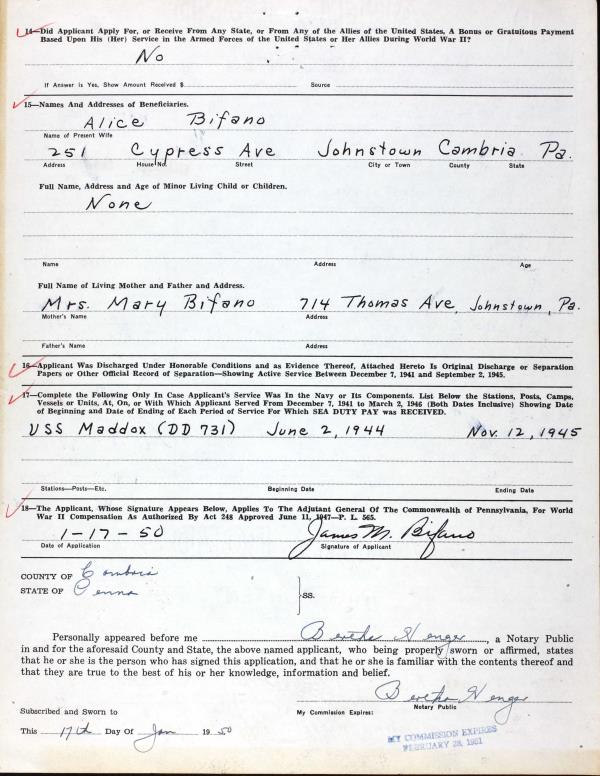 14—Did Applicant Apply For, or Receive From Any State, or From Any of the Allies of the United States, A Bonus or Gratuitous Payment
Based Upon His (Her) Service in the Armed Forces of the United States or Her Allies During World War II?
No
If Answer is Yes, Show Amount Received $ Source
15—Names And Addresses of Beneficiaries.
Alice Bifano
Name of Present Wife
251 Cypress Ave Johnstown Cambria Pa.
Address House No. Street City or Town County State
Full Name, Address and Age of Minor Living Child or Children.
None
Name Address Age
Full Name of Living Mother and Father and Address.
Mrs. Mary Bifano 714 Thomas Ave, Johnstown, Pa.
Mother's Name Address
Father's Name Address
16—Applicant Was Discharged Under Honorable Conditions and as Evidence Thereof, Attached Hereto Is Original Discharge or Separation
Papers or Other Official Record of Separation—Showing Active Service Between December 7, 1941 and September 2, 1945.
17—Complete the Following Only In Case Applicant's Service Was In the Navy or Its Components. List Below the Stations, Posts, Camps,
Vessels or Units, At, On, or With Which Applicant Served From December 7, 1941 to March 2, 1946 (Both Dates Inclusive) Showing Date
of Beginning and Date of Ending of Each Period of Service For Which SEA DUTY PAY was RECEIVED.
USS Maddox (DD 731) June 2, 1944 Nov. 12, 1945
Stations—Posts—Etc. Beginning Date Ending Date
18—The Applicant, Whose Signature Appears Below, Applies To The Adjutant General Of The Commonwealth of Pennsylvania, For World
War II Compensation As Authorized By Act 248 Approved June 11, 1947—P. L. 565.
1-17-50 James M. Bifano
Date of Application Signature of Applicant
COUNTY OF Cambria
STATE OF Penna
SS.
Personally appeared before me Bertha Wenger, a Notary Public
in and for the aforesaid County and State, the above named applicant, who being properly sworn or affirmed, states
that he or she is the person who has signed this application, and that he or she is familiar with the contents thereof and
that they are true to the best of his or her knowledge, information and belief.
Bertha Wenger
Notary Public
Subscribed and Sworn to My Commission Expires:
This 17th Day Of Jan 1950
MY COMMISSION EXPIRES
FEBRUARY 28, 1951